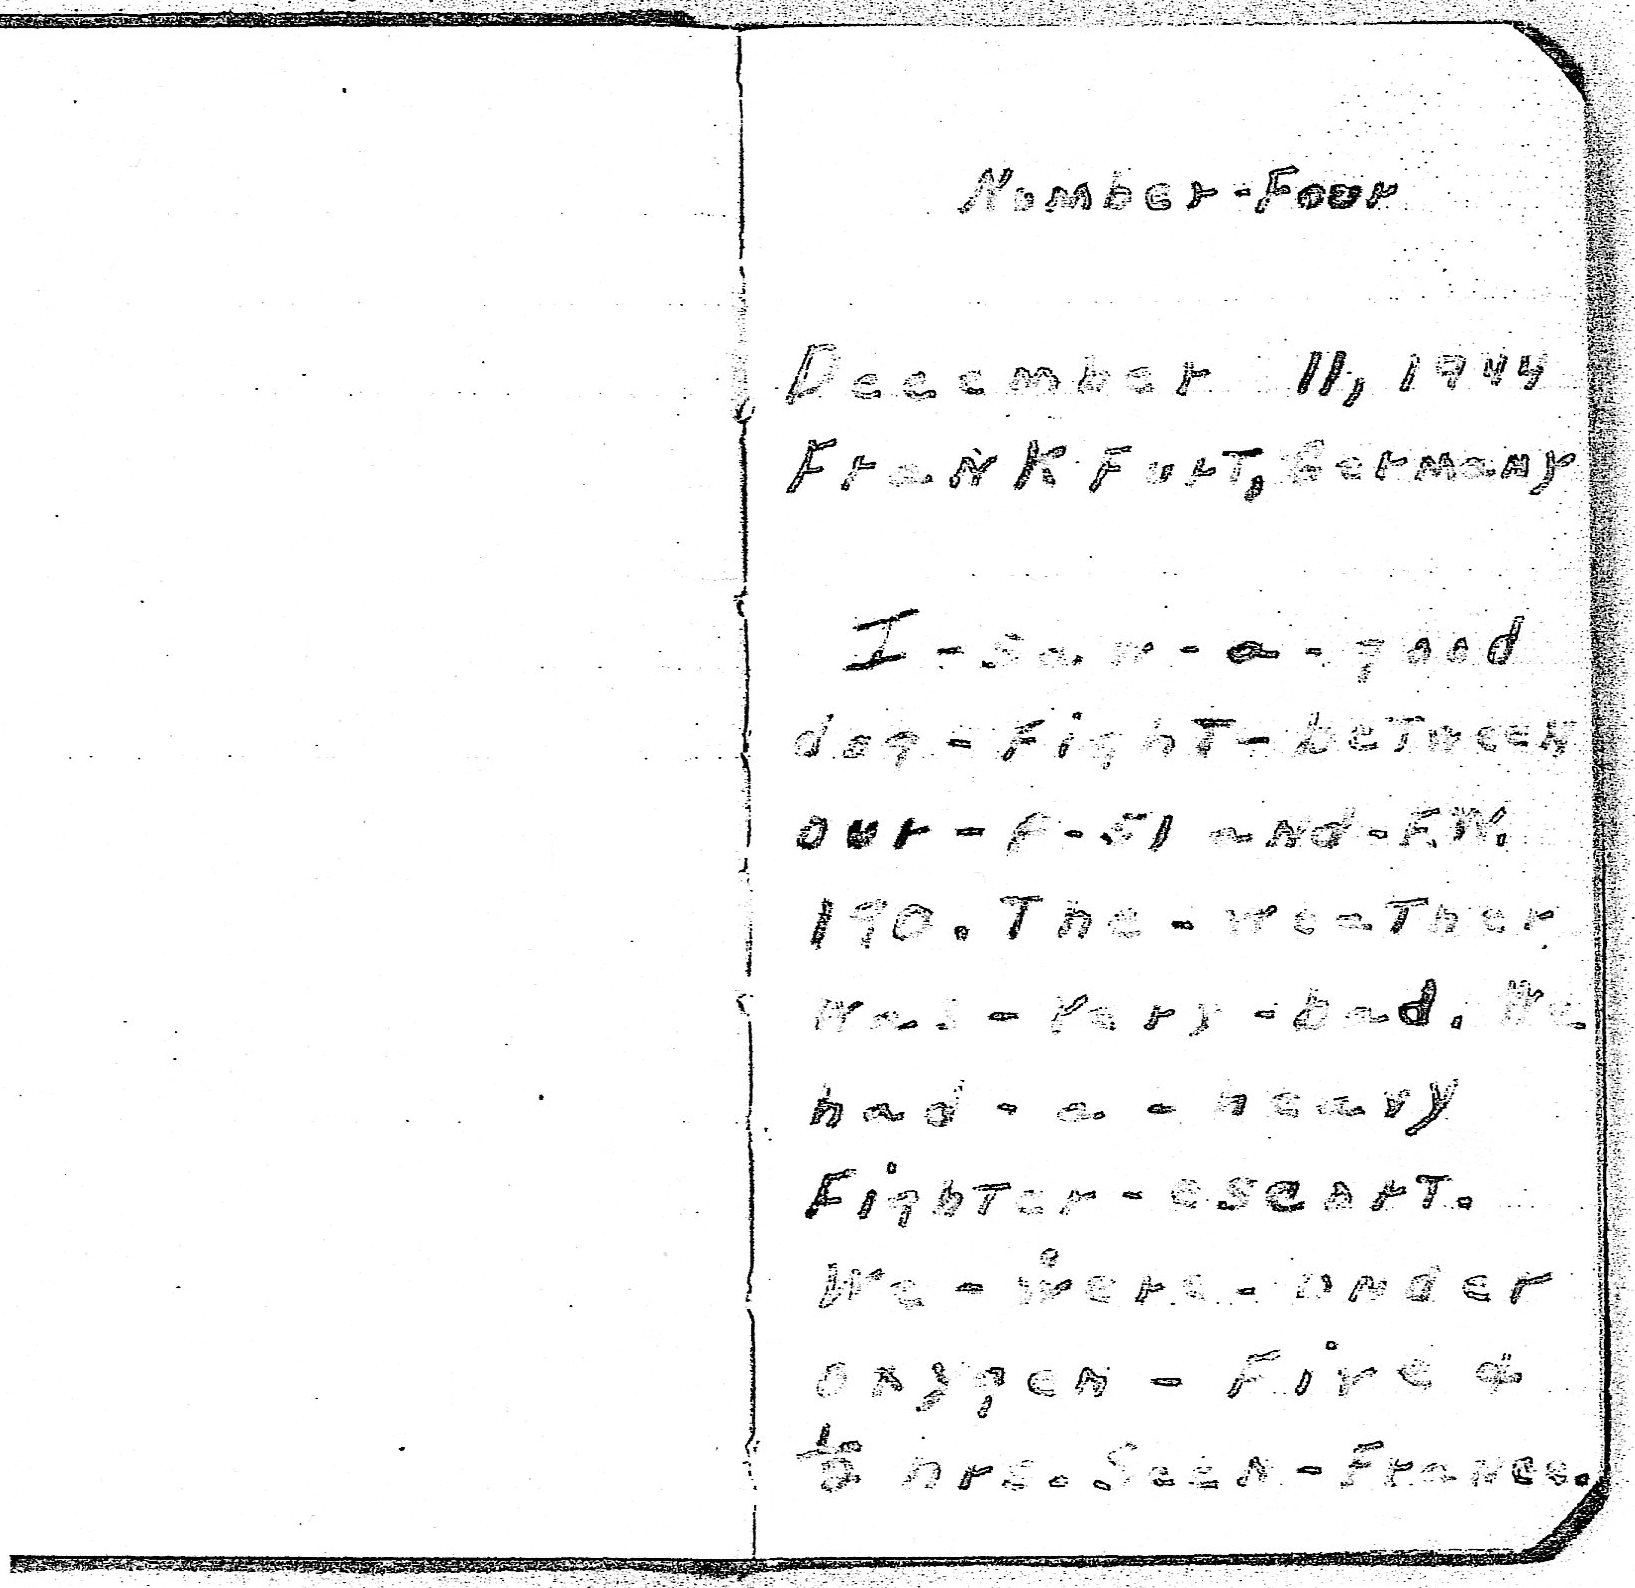 Number-Four
December 11, 1944
FranKFurT, Germany
I-saw-a-good
dog-FighT-beTween
our-P-51 and-F.W.
190. The-weaTher
was-Very-bad. We
had-a-heavy
FighTer-escorT.
We-were-under
oxygen-Five &
1/2 hrs. Seen-France.